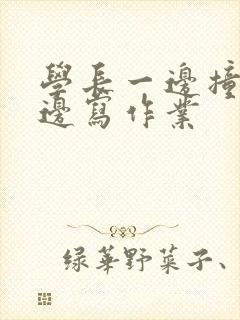 學長一邊撞
邊寫作業
綠華野菜子、